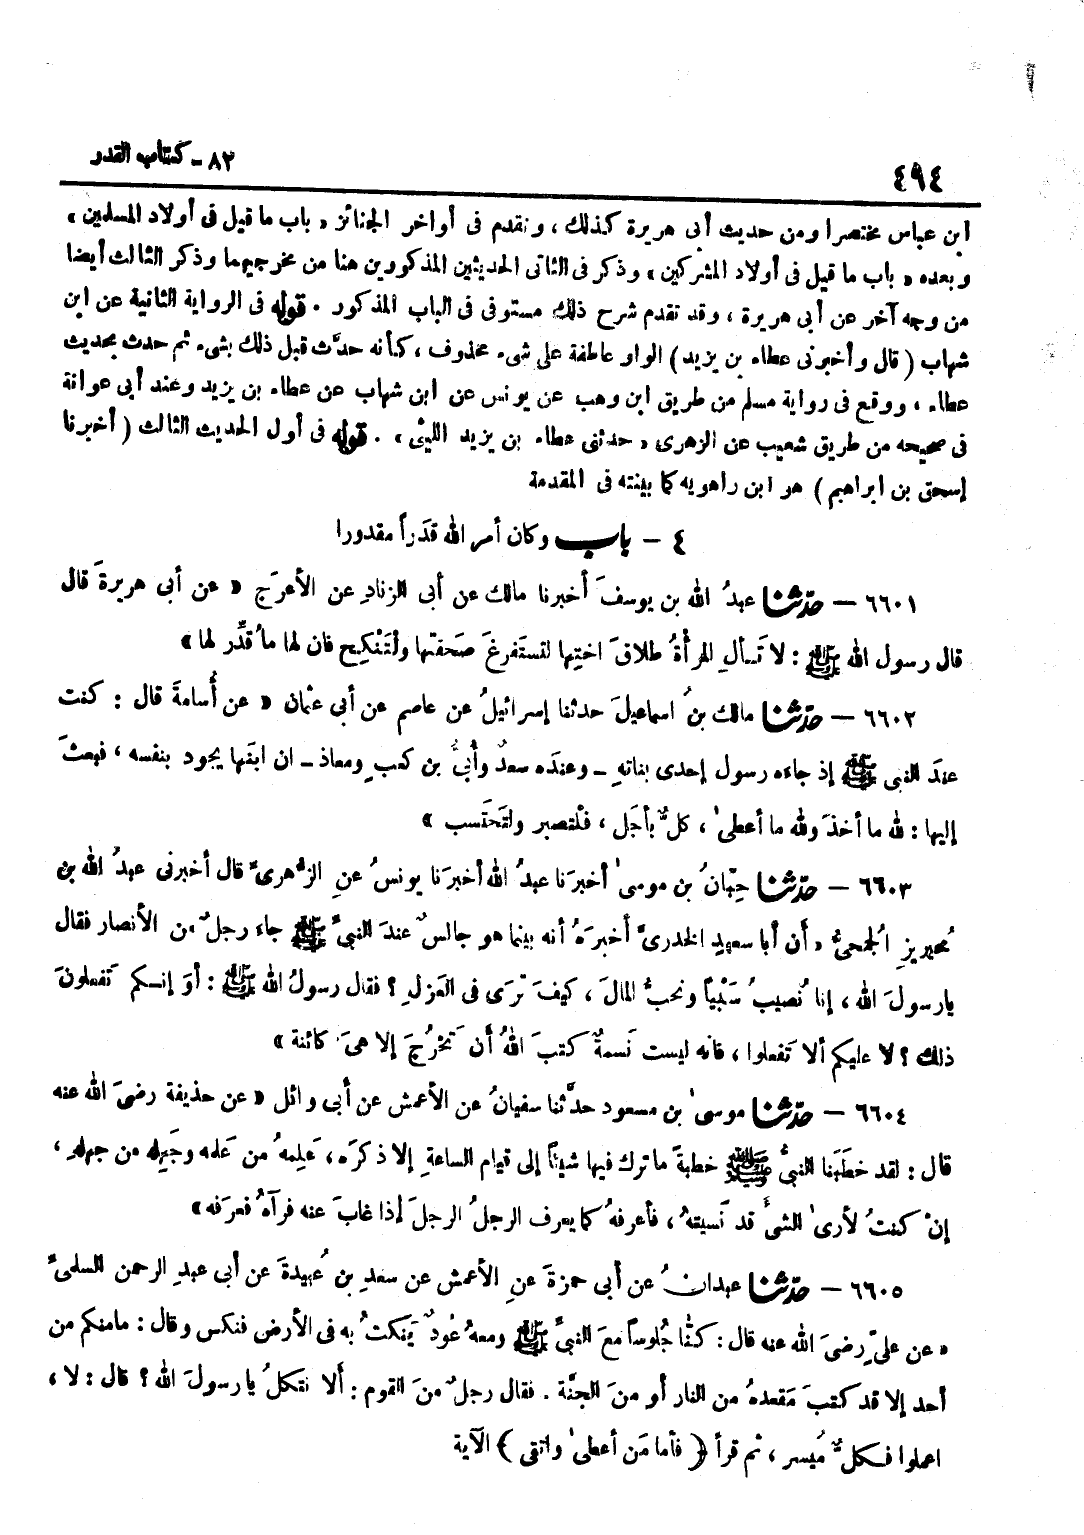 ٤٩٤
٨٢ - كتاب القدر
ابن عباس مختصرا ومن حديث أبى هريرة كذلك ، وتقدم فى أواخر الجنائز « باب ما قيل فى أولاد المسلمين »
وبعده « باب ما قيل فى أولاد المشركين » وذكر فى الثانى الحديثين المذكورين هنا من مخرجيهما وذكر الثالث أيضا
من وجه آخر عن أبى هريرة ، وقد تقدم شرح ذلك مستوفى فى الباب المذكور . قوله فى الرواية الثانية عن ابن
شهاب ( قال وأخبرنى عطاء بن يزيد ) الواو عاطفة على شىء محذوف ، كأنه حدَّث قبل ذلك بشىء ثم حدث بحديث
عطاء ، ووقع فى رواية مسلم من طريق ابن وهب عن يونس عن ابن شهاب عن عطاء بن يزيد وعند أبى عوانة
فى صحيحه من طريق شعيب عن الزهرى « حدثنى عطاء بن يزيد الليثى » . قوله فى أول الحديث الثالث ( أخبرنا
إسحق بن ابراهيم ) هو ابن راهويه كما بينته فى المقدمة
٤ - باب وكان أمر الله قدَراً مقدورا
٦٦٠١ - حدّثنا عبدُ الله بن يوسفَ أخبرنا مالك عن أبى الزنادِ عن الأعرَج « عن أبى هريرةَ قال
قال رسول الله ﷺ : لا تَسألِ المرأةُ طلاقَ اختِها لتستَفرغَ صَحفتَها ولْتَنْكِح فان لها ما قُدِّر لها »
٦٦٠٢ - حدّثنا مالك بنُ اسماعيلَ حدثنا إسرائيلُ عن عاصم عن أبى عثمان « عن أُسامةَ قال : كنت
عندَ النبى ﷺ إذ جاءه رسول إحدى بناتهِ - وعندَه سعدٌ وأُبىُّ بن كعبٍ ومعاذ - ان ابنَها يجود بنفسه ، فبعثَ
إليها : لله ما أخذَ ولله ما أعطىٰ ، كلٌّ بأجَل ، فلْتصبر ولتَحتَسب »
٦٦٠٣ - حدّثنا حِبّانُ بن موسىٰ أخبرَنا عبدُ الله أخبرَنا يونسُ عنِ الزُّهرىِّ قال أخبرنى عبدُ الله بن
مُحيريزٍ الجُمحىُّ « أن أبا سعيدٍ الخدرىَّ أخبرَهُ أنه بينما هو جالسٌ عندَ النبىِّ ﷺ جاء رجلٌ من الأنصار فقال
يارسولَ الله ، إنا نُصيبُ سَبْياً ونحبُّ المالَ ، كيفَ تَرَى فى العَزلِ ؟ فقال رسولُ الله ﷺ : أوَ إنكم تَفعلونَ
ذلك ؟ لا عليكم ألا تَفعلوا ، فانه ليست نَسمةٌ كتبَ اللهُ أن تَخرُجَ إلا هىَ كائنة »
٦٦٠٤ - حدّثنا موسىٰ بن مسعود حدَّثنا سفيانُ عن الأعمش عن أبى وائل « عن حذيفة رضىَ الله عنه
قال : لقد خطَبَنا النبىُّ ﷺ خطبةً ما ترك فيها شيئاً إلى قيام الساعةِ إلا ذكرَه ، عَلِمهُ من عَلمه وجَهِله من جهله ،
إنْ كنتُ لأرىٰ الشىَّ قد نَسيتهُ ، فأعرفهُ كما يعرف الرجلُ الرجلَ إذا غابَ عنه فرآهُ فعرَفه »
٦٦٠٥ - حدّثنا عبدانُ عن أبى حمزةَ عنِ الأعمش عن سعدِ بنِ عُبيدةَ عن أبى عبدِ الرحمن السلمىِّ
« عن علىّ رضىَ الله عنه قال : كنّا جُلوساً معَ النبىِّ ﷺ ومعهُ عُودٌ يَنكتُ به فى الأرض فنكس وقال : مامنكم من
أحد إلا قد كتبَ مَقعدهُ من النار أو منَ الجنَّة . فقال رجلٌ منَ القوم : ألا نتكلُ يارسولَ الله ؟ قال : لا ،
اعملوا فكلٌّ مُيسر ، ثم قرأ ( فأما مَن أعطىٰ واتقى ) الآية